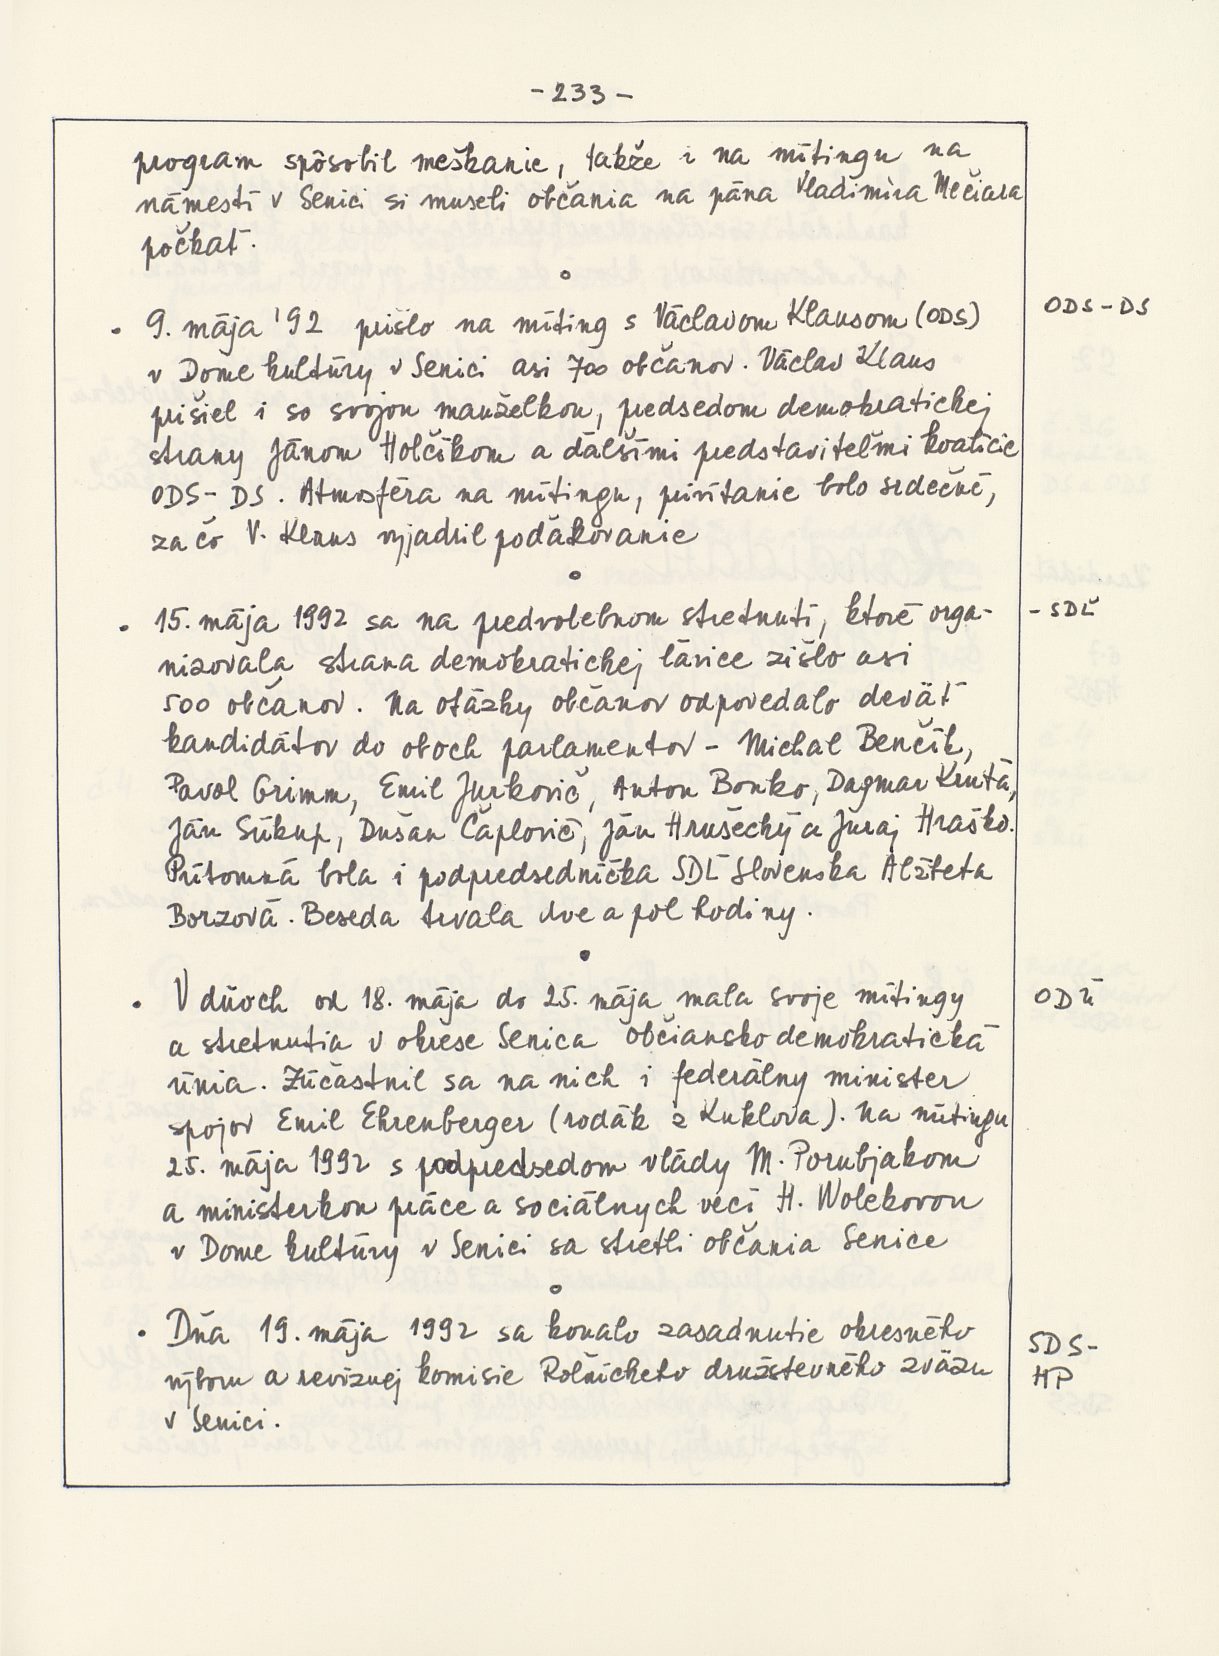 - 233 -
program spôsobil meškanie, takže i na mítingu na
námestí v Senici si museli občania na pána Vladimíra Mečiara
počkať.
• 9. mája '92 prišlo na míting s Václavom Klausom (ODS)
ODS-DS
v Dome kultúry v Senici asi 700 občanov. Václav Klaus
prišiel i so svojou manželkou, predsedom demokratickej
strany Jánom Holčíkom a ďalšími predstaviteľmi koalície
ODS-DS. Atmosféra na mítingu, privítanie bolo srdečné,
za čo V. Klaus vyjadril poďakovanie
• 15. mája 1992 sa na predvolebnom stretnutí, ktoré orga-
- SDĽ
nizovala strana demokratickej ľavice zišlo asi
500 občanov. Na otázky občanov odpovedalo deväť
kandidátov do oboch parlamentov - Michal Benčík,
Pavol Grimm, Emil Jurkovič, Anton Bonko, Dagmar Krutá,
Ján Súkup, Dušan Čaplovič, Ján Hrušecký a Juraj Hraško.
Prítomná bola i podpredsedníčka SDĽ Slovenska Alžbeta
Borzová. Beseda trvala dve a pol hodiny.
• V dňoch od 18. mája do 25. mája mala svoje mítingy
ODÚ
a stretnutia v okrese Senica Občianskodemokratická
únia. Zúčastnil sa na nich i federálny minister
spojov Emil Ehrenberger (rodák z Kuklova). Na mítingu
25. mája 1992 s podpredsedom vlády M. Porubjakom
a ministerkou práce a sociálnych vecí H. Wolekovou
v Dome kultúry v Senici sa stretli občania Senice
• Dňa 19. mája 1992 sa konalo zasadnutie okresného
SDS-
výboru a revíznej komisie Roľníckeho družstevného zväzu
HP
v Senici.